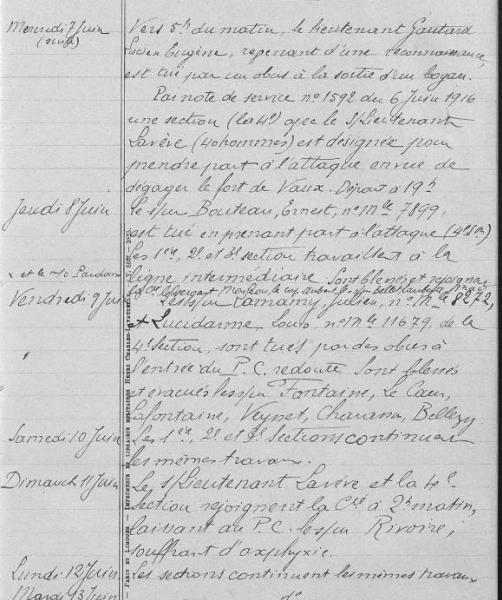 Mercredi 7 Juin Vers 5h du matin, le lieutenant Gautard
(suite) Lucien Eugène, revenant d'une reconnaissance,
est tué par un obus à la sortie d'un boyau.
Par note de service n° 1592 du 6 Juin 1916
une section (la 4e) avec le S/Lieutenant
Lavère (40 hommes) est désignée pour
prendre part à l'attaque en vue de
dégager le fort de Vaux. Départ à 19h
Jeudi 8 Juin Le sr Bouteau, Ernest, n° Mle 7899,
est tué en prenant part à l'attaque (4e Son)
Les 1ère, 2e et 3e section travaillent à la
ligne intermédiaire. Sont blessés et
et le
Vendredi 9 Juin Les srs Lamamy, Julien, n° Mle 8272,
et Lucidarme, Louis, n° Mle 11679, de la
4e Section, sont tués par des obus à
l'entrée du P.C. redoute. Sont blessés
et évacués les srs Fontaine, Le Cœur,
Lafontaine, Veynet, Chavanon, Bellezy
Samedi 10 Juin Les 1ère, 2e et 3e Sections continuent
les mêmes travaux.
Dimanche 11 Juin Le S/Lieutenant Lavère et la 4e
Section rejoignent la Cie à 2h matin,
laissant au P.C. le sr Rivoire,
souffrant d'axphyxie.
Lundi 12 Juin Les sections continuent les mêmes travaux
Mardi 13 Juin d°